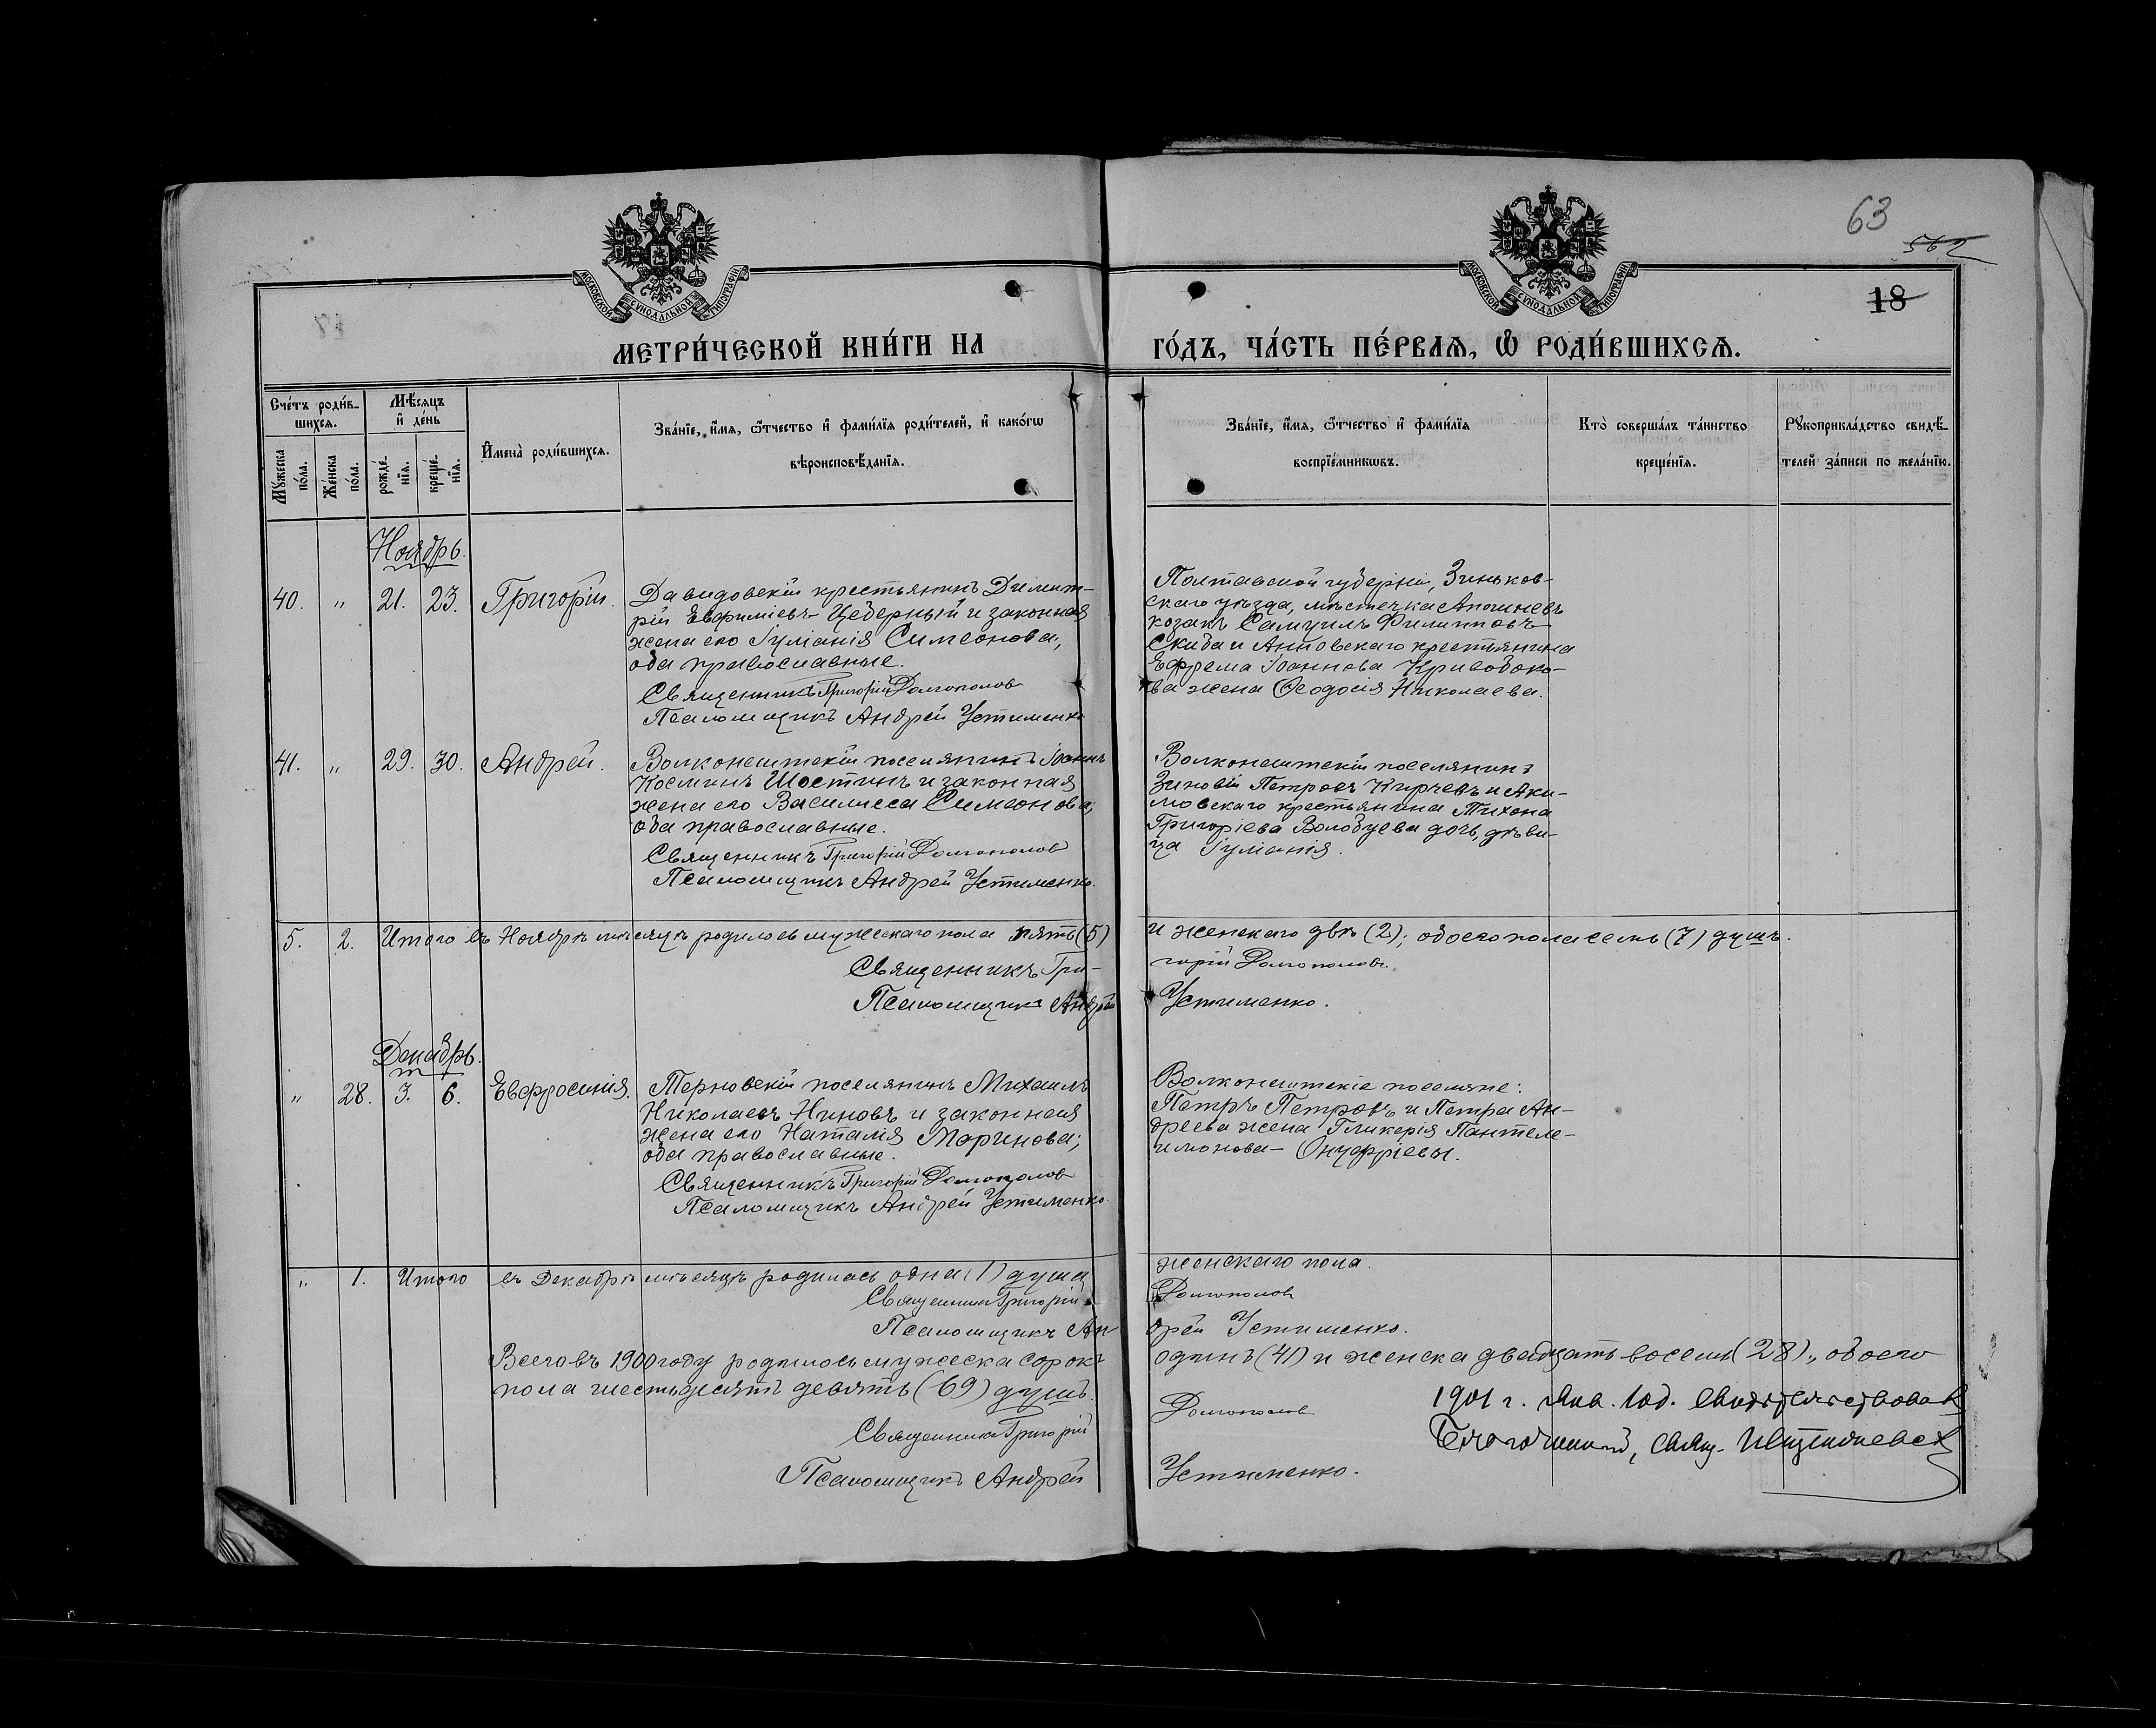 63
562
18
МОСКОВСКОЙ СѴНОДАЛЬНОЙ ТИПОГРАФІИ
МОСКОВСКОЙ СѴНОДАЛЬНОЙ ТИПОГРАФІИ
МЕТРИ́ЧЕСКОЙ КНИ́ГИ НА ГО́ДЪ, ЧА́СТЬ ПЕ́РВАѦ, Ѡ РОДИ́ВШИХСѦ.
Сче́тъ роди́в-
шихсѧ.
Мꙋ́жеска по́ла.
Же́нска по́ла.
Мѣ́сѧцъ и҆ де́нь
рожде́-нїѧ.
креще́-нїѧ.
И҆мена̀ роди́вшихсѧ.
Зва́нїе, и҆́мѧ, ѻ҆́тчество и҆ фами́лїѧ роди́телей, и҆ како́гѡ
вѣроисповѣ́данїѧ.
Зва́нїе, и҆́мѧ, ѻ҆́тчество и҆ фами́лїѧ
воспрїе́мникѡвъ.
Кто̀ соверша́лъ та́инство
креще́нїѧ.
Рꙋкоприкла́дство свидѣ́-
телей за́писи по жела́нїю.
Ноябрь.
40. " 21. 23. Григорій.
Давидовскій крестьянинъ Димит-
рій Евфиміевъ Цеберный и законная
жена его Іуліанія Симеонова,
оба православные.
Священникъ Григорій Долгополов
Псаломщикъ Андрей Устименко
Полтавской губерніи, Зиньков-
скаго уѣзда, мѣстечка
козакъ Самуилъ Филипповъ
Скиба и Анновскаго крестьянина
Ефрема Іоаннова Кривобоко-
ва жена Ѳеодосія Николаева.
41. " 29. 30. Андрей.
Волконештскій поселянинъ Іоаннъ
Косминъ Шостинъ и законная
жена его Василисса Симеонова;
оба православные.
Священникъ Григорій Долгополов
Псаломщикъ Андрей Устименко.
Волконештскій поселянинъ
Зиновій Петровъ Кирчевъ и Аки-
мовскаго крестьянина Тихона
Григоріева Волобуева дочь, дѣви-
ца Іуліанія.
5. 2. Итого въ Ноябрѣ мѣсяцѣ родилось мужескаго пола пять (5) и женскаго двѣ (2); обоего пола семь (7) душъ.
Священникъ Гри-горій Долгополовъ.
Псаломщикъ Андрей Устименко.
Декабрь.
" 28. 3. 6. Евфросинія.
Терновскій поселянинъ Михаилъ
Николаевъ Ниновъ и законная
жена его Наталія Маринова;
оба православные.
Священникъ Григорій Долгополов
Псаломщикъ Андрей Устименко.
Волконештскіе поселяне:
Петръ Петровъ и Петра Ан-
дреева жена Гликерія Пантеле-
имонова - Онуфріевы.
" 1. Итого въ Декабрѣ мѣсяцѣ родилась одна (1) душа женскаго пола.
Священникъ Григорій Долгополов
Псаломщикъ Ан-дрей Устименко.
Всего въ 1900 году родилось мужеска сорокъ одинъ (41) и женска двадцать восемь (28), обоего
пола шестьдесятъ девять (69) душъ.
Священникъ Григорій Долгополов
Псаломщикъ Андрей Устименко.
1901 г. Янв. 10 д. свидѣтельствовалъ
Благочинный, свящ.